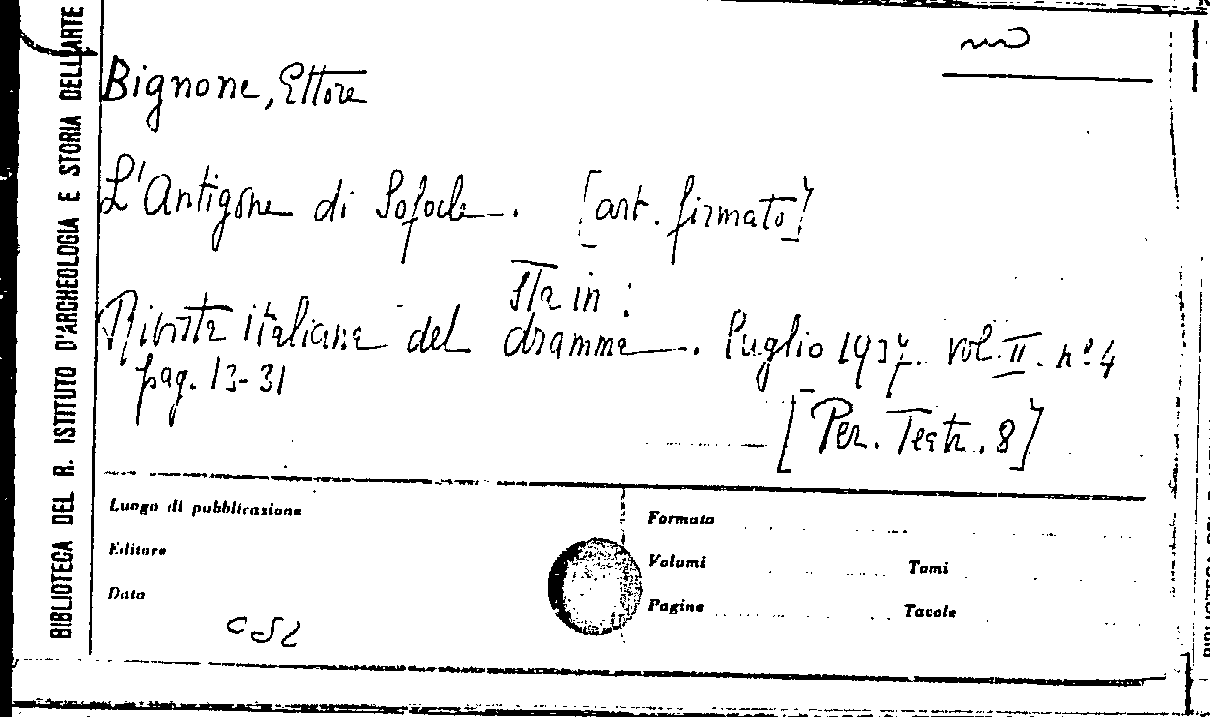 BIBLIOTECA DEL R. ISTITUTO D'ARCHEOLOGIA E STORIA DELL'ARTE
Bignone, Ettore
L'Antigone di Sofocle. [art. firmato]
Sta in:
Rivista italiana del dramma. Luglio 1937. vol. II. nº 4
pag. 13-31
[Per. Teatr. 8]
Luogo di pubblicazione
Formato
Editore
Volumi Tomi
Data
Pagine Tavole